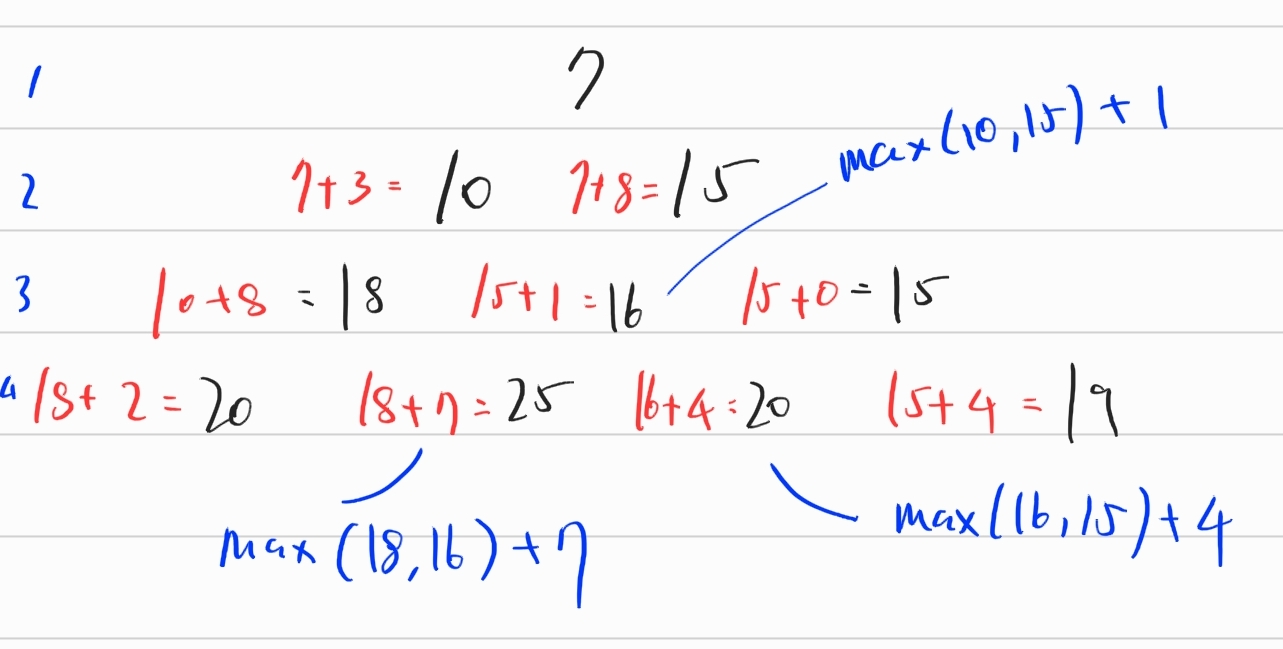 1 7
max(10,15)+1
2 7+3=10 7+8=15
3 10+8=18 15+1=16 15+0=15
4 18+2=20 18+7=25 16+4=20 15+4=19
max(18,16)+7
max(16,15)+4